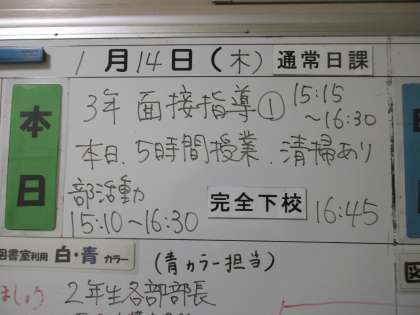 1月14日(木) 通常日課
本日
3年 面接指導① 15:15
～16:30
本日、5時間授業、清掃あり
部活動
15:10～16:30
完全下校 16:45
図書室利用 白・青 カラー
(青カラー担当)
ましょう 2年生各部部長
図